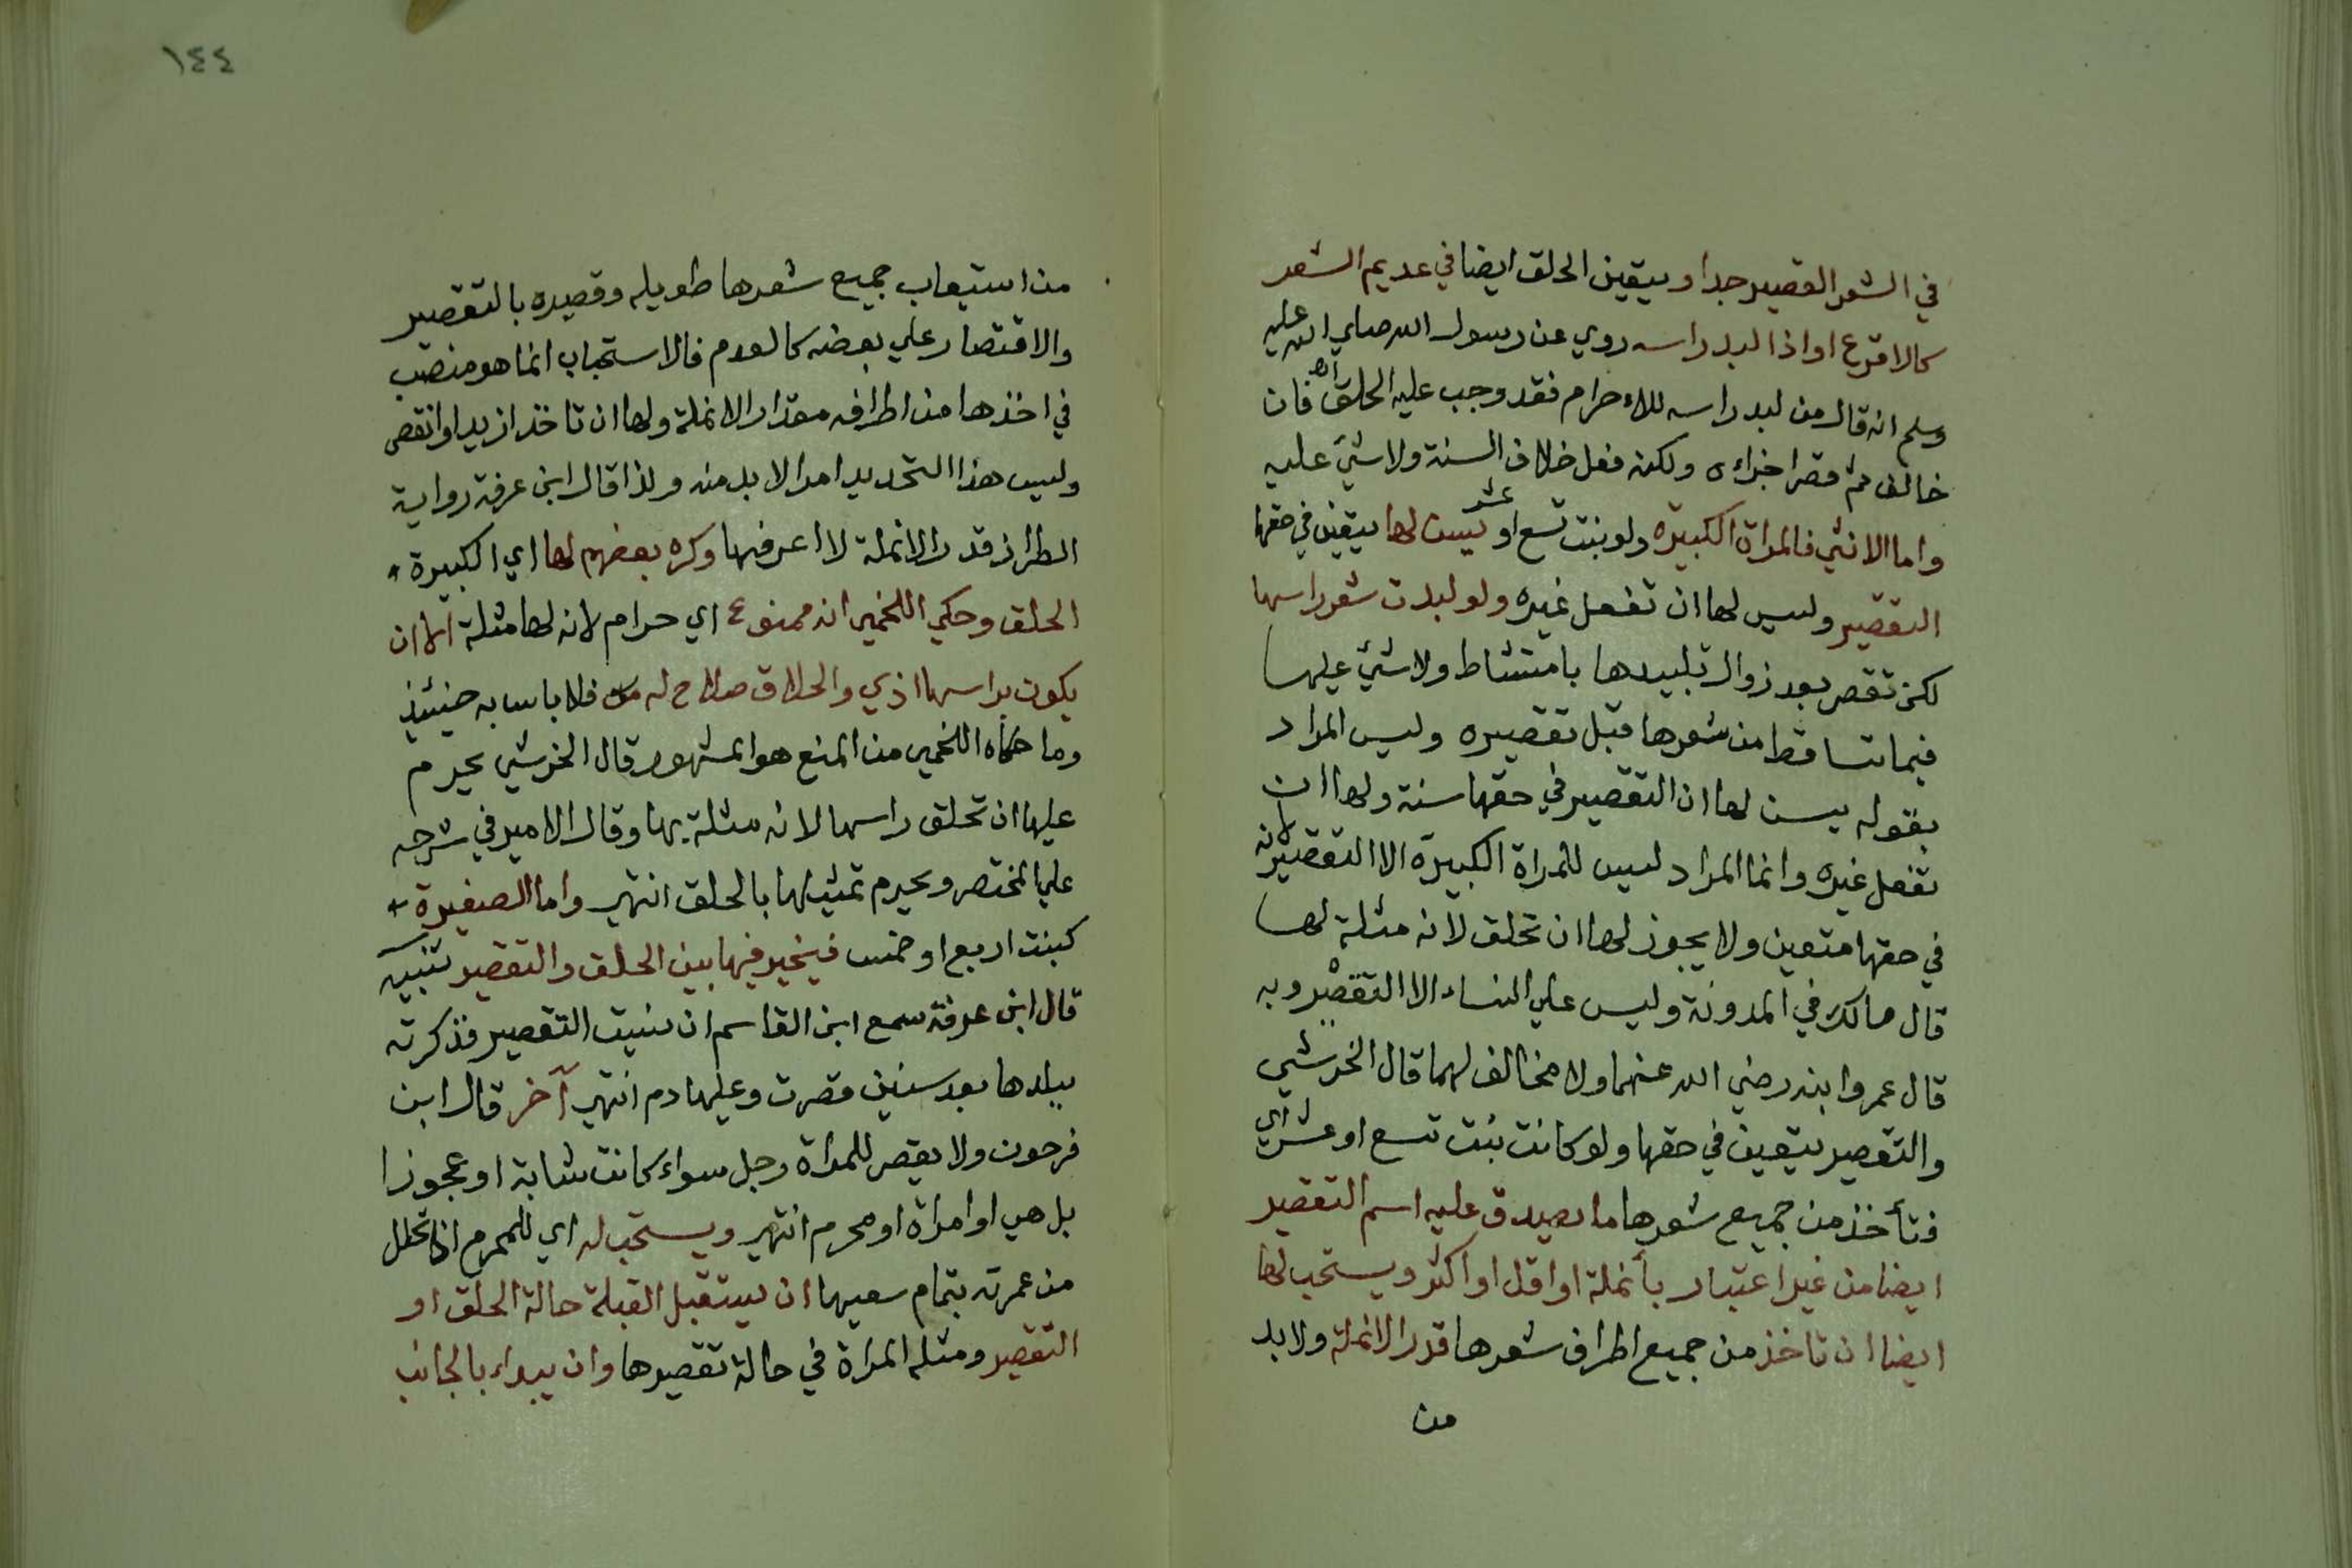 في الشعر القصير جدا ويتعين الحلق ايضا في عديم الشعر
كالاقرع او اذا لبد راسه روي عن رسول الله صلي الله عليه
وسلم انه قال من لبد راسه للاحرام فقد وجب عليه الحلق اهـ فان
خالف ثم قصر اجزاءه ولكنه فعل خلاف السنة ولا شيء عليه
واما الانثي فالمراة الكبيرة ولو بنت تسع او عشر يسن لها يتعين في حقها
التقصير وليس لها ان تفعل غيره ولو لبدت شعر راسها
لكن تقصر بعد زوال تلبيدها بامتشاط ولا شيء عليها
فيما تساقط من شعرها قبل تقصيره وليس المراد
بقوله يسن لها ان التقصير في حقها سنة ولها ان
تفعل غيره وانما المراد ليس للمراة الكبيرة الا التقصير لانه
في حقها متعين ولا يجوز لها ان تحلق لانه مثلة لها
قال مالك في المدونة وليس علي النساء الا التقصير وبه
قال عمر وابنه رضي الله عنهما ولا مخالف لهما قال الخرشي
والتقصير يتعين في حقها ولو كانت بنت تسع او عشر اي
فتأخذ من جميع شعرها ما يصدق عليه اسم التقصير
ايضا من غير اعتبار بأنملة او اقل او اكثر ويستحب لها
ايضا ان تاخذ من جميع اطراف شعرها قدر الانملة ولا بد
من
١٤٤
من استيعاب جميع شعرها طويله وقصيره بالتقصير
والاقتصار علي بعضه كالعدم فالاستحباب انما هو منصب
في اخذها من اطرافه مقدار الانملة ولها ان تاخذ ازيد او انقص
وليس هذا التحديد امرا لا بد منه ولذا قال ابن عرفة رواية
الطراز قدر الانملة لا اعرفها وكره بعضهم لها اي الكبيرة
الحلق وحكي اللخمي انه ممنوع اي حرام لانه لها مثلة الا ان
يكون براسها اذي والحلاق صلاح له فلا باس به حينئذ
وما حكاه اللخمي من المنع هو المشهور قال الخرشي يحرم
عليها ان تحلق راسها لانه مثلة بها وقال الامير في شرحه
علي المختصر ويحرم تمثيلها بالحلق انتهي واما الصغيرة
كبنت اربع او خمس فيخير فيها بين الحلق والتقصير تنبيه
قال ابن عرفة سمع ابن القاسم ان نسيت التقصير فذكرته
ببلدها بعد سنين قصرت وعليها دم انتهي آخر قال ابن
فرحون ولا يقصر للمراة رجل سواء كانت شابة او عجوزا
بل هي او امراة او محرم انتهي ويستحب له اي للمحرم اذا تحلل
من عمرته بتمام سعيها ان يستقبل القبلة حالة الحلق او
التقصير ومثله المراة في حالة تقصيرها وان يبداء بالجانب